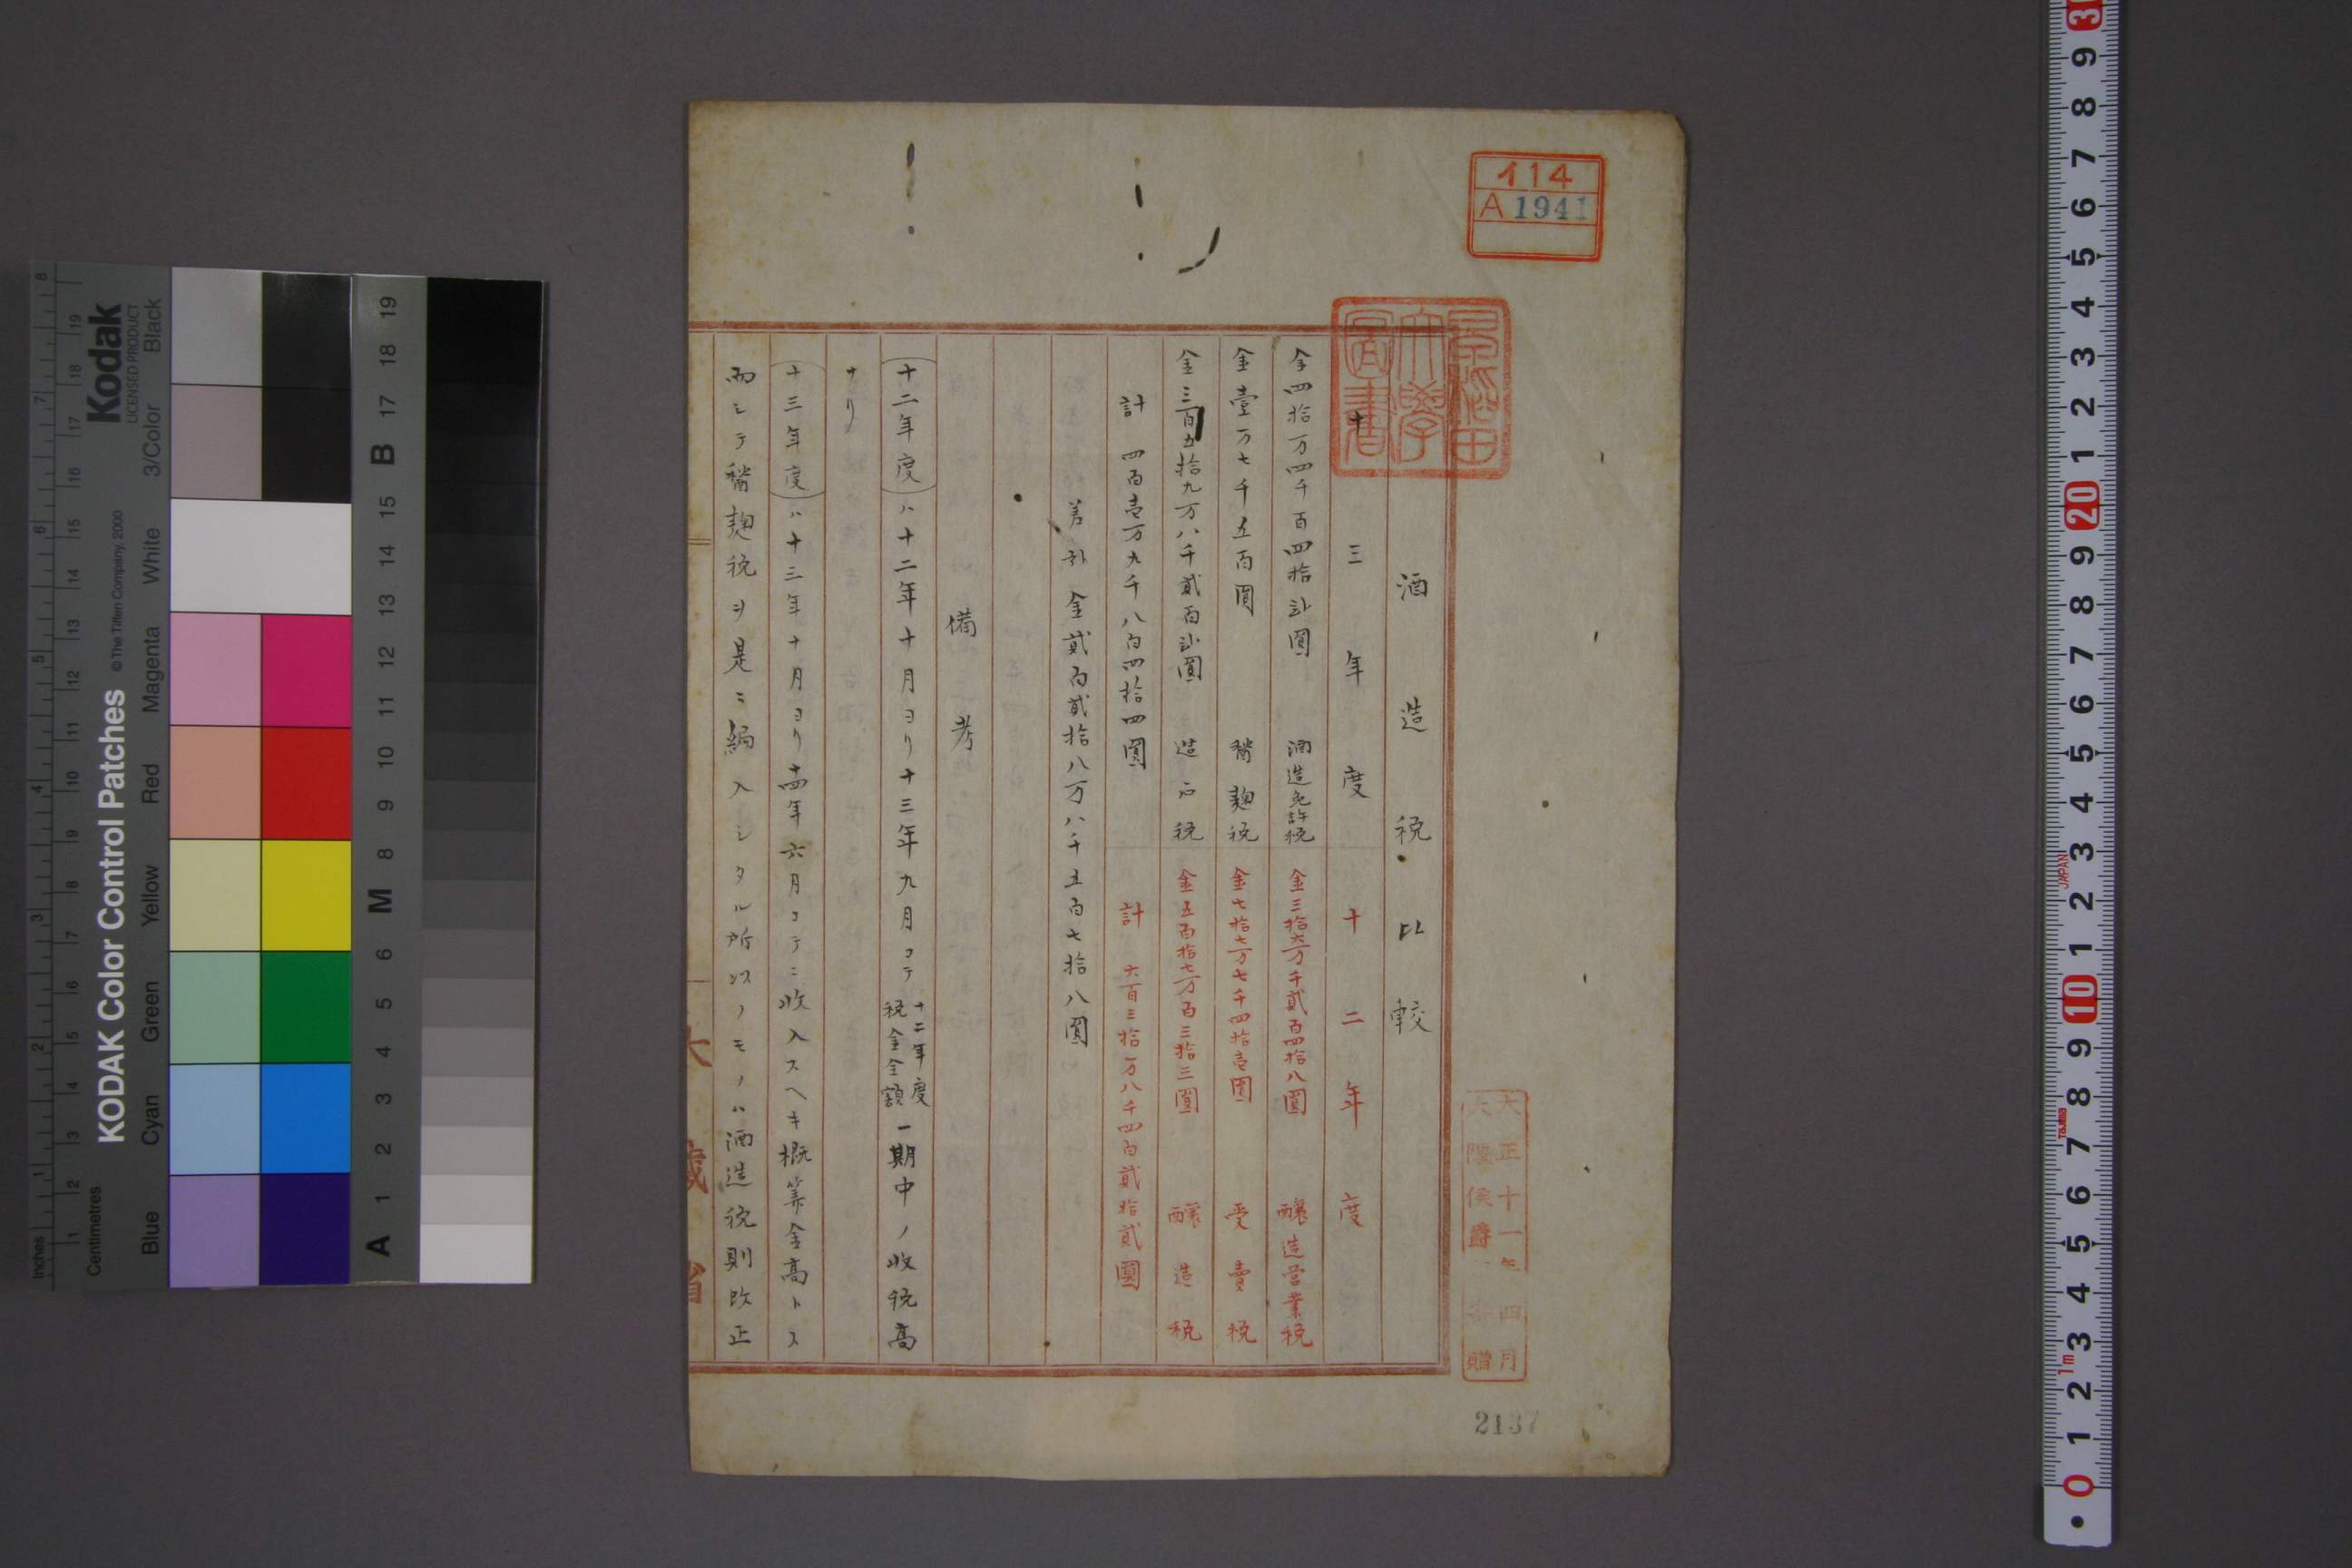 イ14
A 1941
早稲田大學圖書
大正十一年四月
大隈侯爵家寄贈
2137
酒造税比較
十三年度
十二年度
金四拾万四千百四拾弐圓 酒造免許税
金三拾六万千貳百四拾八圓 醸造営業税
金壹万七千五百圓 醤麹税
金七拾七万七千四拾壱圓 受賣税
金三百五拾九万八千貳百弐圓 造石税
金五百拾七万百三拾三圓 醸造税
計 四百壱万九千八百四拾四圓
計 六百三拾一万八千四百貳拾貳圓
差引 金貳百貳拾八万八千五百七拾八圓
備考
十二年度ハ十二年十月ヨリ十三年九月マテ十二年度税金全額一期中ノ收税高
ナリ
十三年度ハ十三年十月ヨリ十四年六月マテニ收入スヘキ概算金高トス
而シテ醤麹税ヲ是ニ編入シタル所以ノモノハ酒造税則改正
大藏省
Kodak
LICENSED PRODUCT
KODAK Color Control Patches
© The Tiffen Company, 2000
Inches
Centimetres
Blue Cyan Green Yellow Red Magenta White 3/Color Black
A 1 2 3 4 5 6 M 8 9 10 11 12 13 14 15 B 17 18 19
JAPAN
Tajima
1m
0 1 2 3 4 5 6 7 8 9 10 1 2 3 4 5 6 7 8 9 20 1 2 3 4 5 6 7 8 9 3